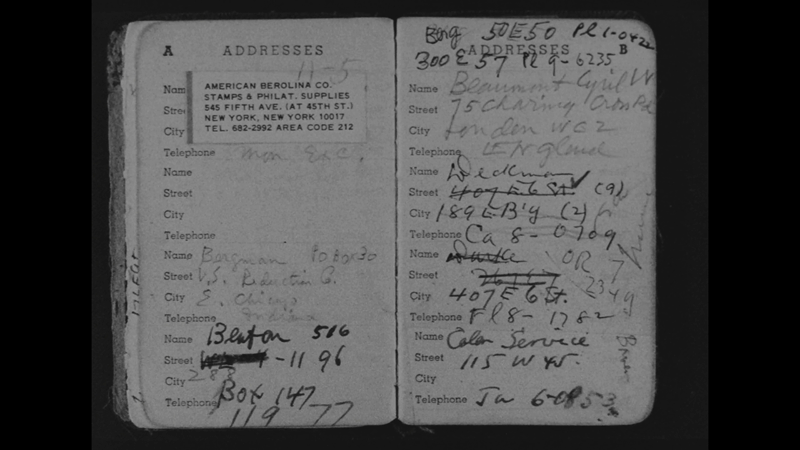 A ADDRESSES
11-5
Name
AMERICAN BEROLINA CO.
STAMPS & PHILAT. SUPPLIES
545 FIFTH AVE. (AT 45TH ST.)
NEW YORK, NEW YORK 10017
TEL. 682-2992 AREA CODE 212
Street
City
Telephone Mon Exc.
Name
Street
City
Telephone
Name Bergman PO Box 30
Street U.S. Reduction C.
City E. Chicago
Telephone Indiana
Name Benton 506
Street -11 96
City 288
Telephone Box 147
119 77
Berg 50 E 50 Pl 1-0422
ADDRESSES B
300 E 57 Pl 9-6235
Name Beaumont Cyril W
Street 75 Charing Cross Rd
City London WC2
Telephone ENgland
Name
Street 407 E 6 St. (9)
City 189 E B'y (2)
Telephone Ca 8-0709
Name OR 7
Street 2349
City 407 E 6 St.
Telephone Pl 8-1782
Name Color Service
Street 115 W 45.
City
Telephone Ju 6-0853